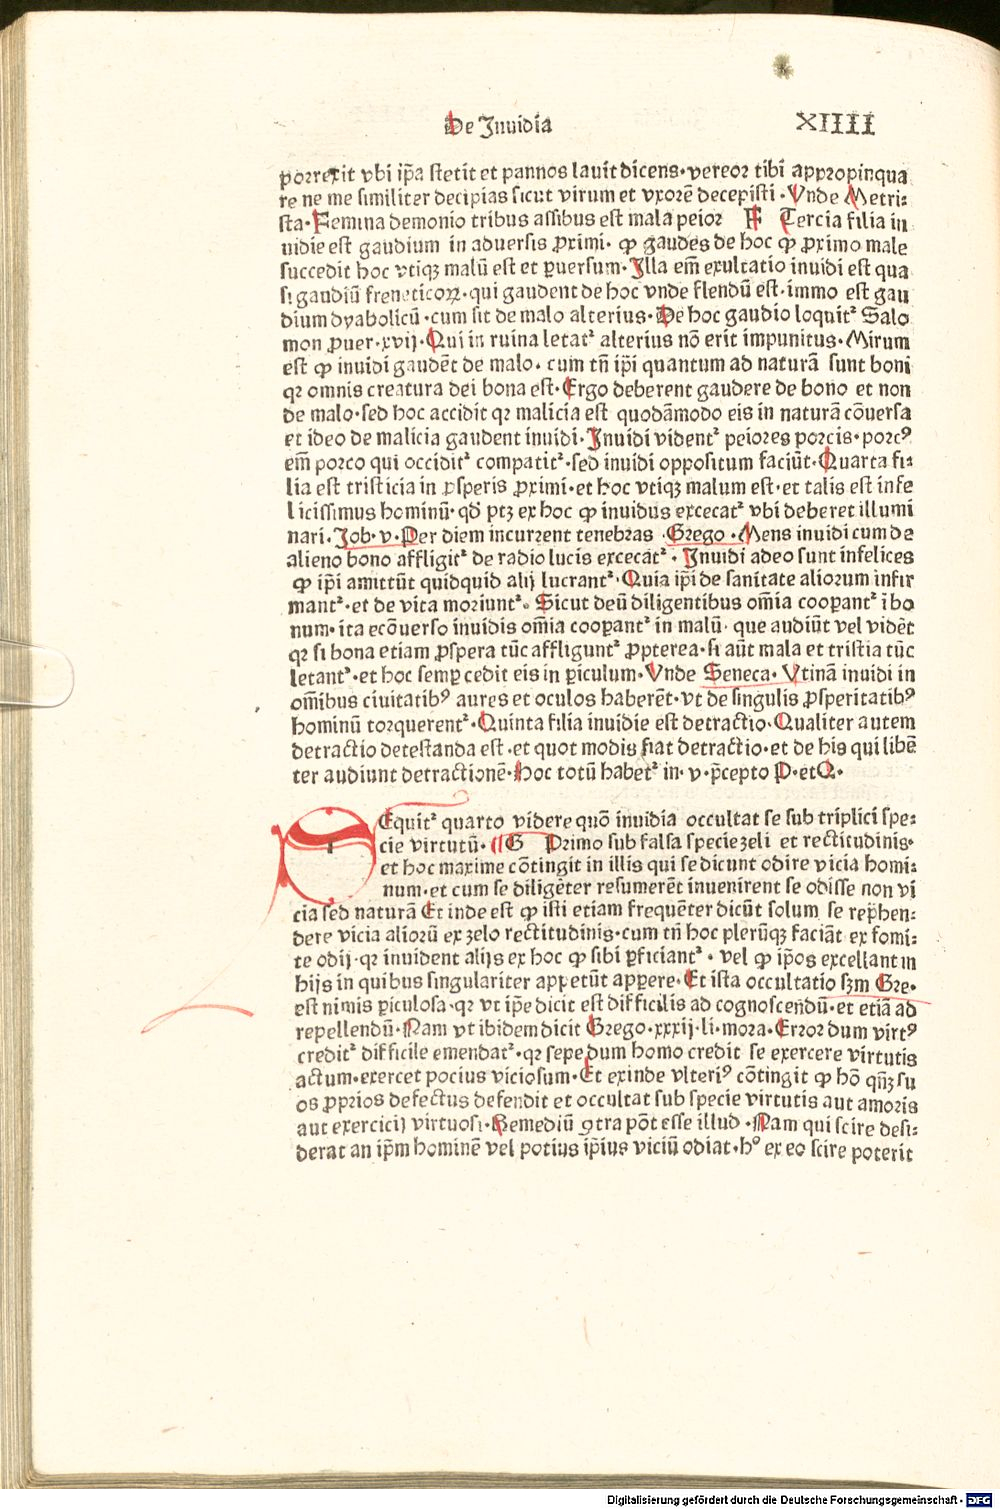 De Inuidia
XIIII
porrexit vbi ip̄a stetit et pannos lauit dicens·vereor tibi appropinqua
re ne me similiter decipias sicut virum et vxorē decepisti·Vnde Metri:
sta·Femina demonio tribus assibus est mala peior F Tercia filia in
uidie est gaudium in aduersis ꝓximi·ꝙ gaudes de hoc ꝙ ꝓximo male
succedit hoc vtiqꝫ malū est et ꝑuersum·Illa em̄ exultatio inuidi est qua
si gaudiū freneticoꝝ·qui gaudent de hoc vnde flendū est·immo est gau
dium dyabolicū·cum sit de malo alterius·De hoc gaudio loquitᷣ Salo
mon ꝓuer·xvij·Qui in ruina letatᷣ alterius nō erit impunitus·Mirum
est ꝙ inuidi gaudēt de malo·cum tn̄ ip̄i quantum ad naturā sunt boni
qꝛ omnis creatura dei bona est·Ergo deberent gaudere de bono et non
de malo·sed hoc accidit qꝛ malicia est quodāmodo eis in naturā cōuersa
et ideo de malicia gaudent inuidi·Inuidi videntᷣ peiores porcis·porcꝰ
em̄ porco qui occiditᷣ compatitᷣ·sed inuidi oppositum faciūt·Quarta fi:
lia est tristicia in ꝓsperis ꝓximi·et hoc vtiqꝫ malum est·et talis est infe
licissimus hominū·qd̄ ptꝫ ex hoc ꝙ inuidus excecatᷣ vbi deberet illumi
nari·Job·v·Per diem incurrent tenebras·Grego·Mens inuidi cum de
alieno bono affligitᷣ de radio lucis excecatᷣ·Inuidi adeo sunt infelices
ꝙ ip̄i amittūt quidquid alij lucrantᷣ·Quia ip̄i de sanitate aliorum infir
mantᷣ·et de vita moriuntᷣ·Sicut deū diligentibus om̄ia cooꝑantᷣ ī bo
num·ita ecōuerso inuidis om̄ia cooꝑantᷣ in malū·que audiūt vel vidēt
qꝛ si bona etiam ꝓspera tūc affliguntᷣ ꝓpterea·si aūt mala et tristia tūc
letantᷣ·et hoc semꝑ cedit eis in ꝑiculum·Vnde Seneca·Vtinā inuidi in
om̄ibus ciuitatibꝰ aures et oculos haberēt·vt de singulis ꝓsperitatibꝰ
hominū torquerentᷣ·Quinta filia inuidie est detractio·Qualiter autem
detractio detestanda est·et quot modis fiat detractio·et de his qui libē
ter audiunt detractionē·Hoc totū habetᷣ in·v·p̄cepto P·et Q·
SEquitᷣ quarto videre quō inuidia occultat se sub triplici spe:
cie virtutū·G Primo sub falsa specie zeli et rectitudinis·
et hoc maxime cōtingit in illis qui se dicunt odire vicia homi:
num·et cum se diligēter resumerēt inuenirent se odisse non vi
cia sed naturā Et inde est ꝙ isti etiam frequēter dicūt solum se rep̄hen:
dere vicia aliorū ex zelo rectitudinis·cum tn̄ hoc plerūqꝫ faciāt ex fomi:
te odij·qꝛ inuident alijs ex hoc ꝙ sibi ꝑficiantᷣ·vel ꝙ ip̄os excellant in
hijs in quibus singulariter appetūt apꝑere·Et ista occultatio scꝫm Gre·
est nimis ꝑiculosa·qꝛ vt ip̄e dicit est difficilis ad cognoscendū·et etiā ad
repellendū·Nam vt ibidem dicit Grego·xxxij·li·mora·Error dum virtꝰ
creditᷣ difficile emendatᷣ·qꝛ sepe dum homo credit se exercere virtutis
actum·exercet pocius viciosum·Et exinde vlteriꝰ cōtingit ꝙ hō qn̄qꝫ su
os ꝓprios defectus defendit et occultat sub specie virtutis aut amoris
aut exercicij virtuosi·Remediū ꝯtra pōt esse illud·Nam qui scire desi:
derat an ip̄m hominē vel potius ip̄ius viciū odiat·hᵒ ex eo scire poterit
Digitalisierung gefördert durch die Deutsche Forschungsgemeinschaft - DFG